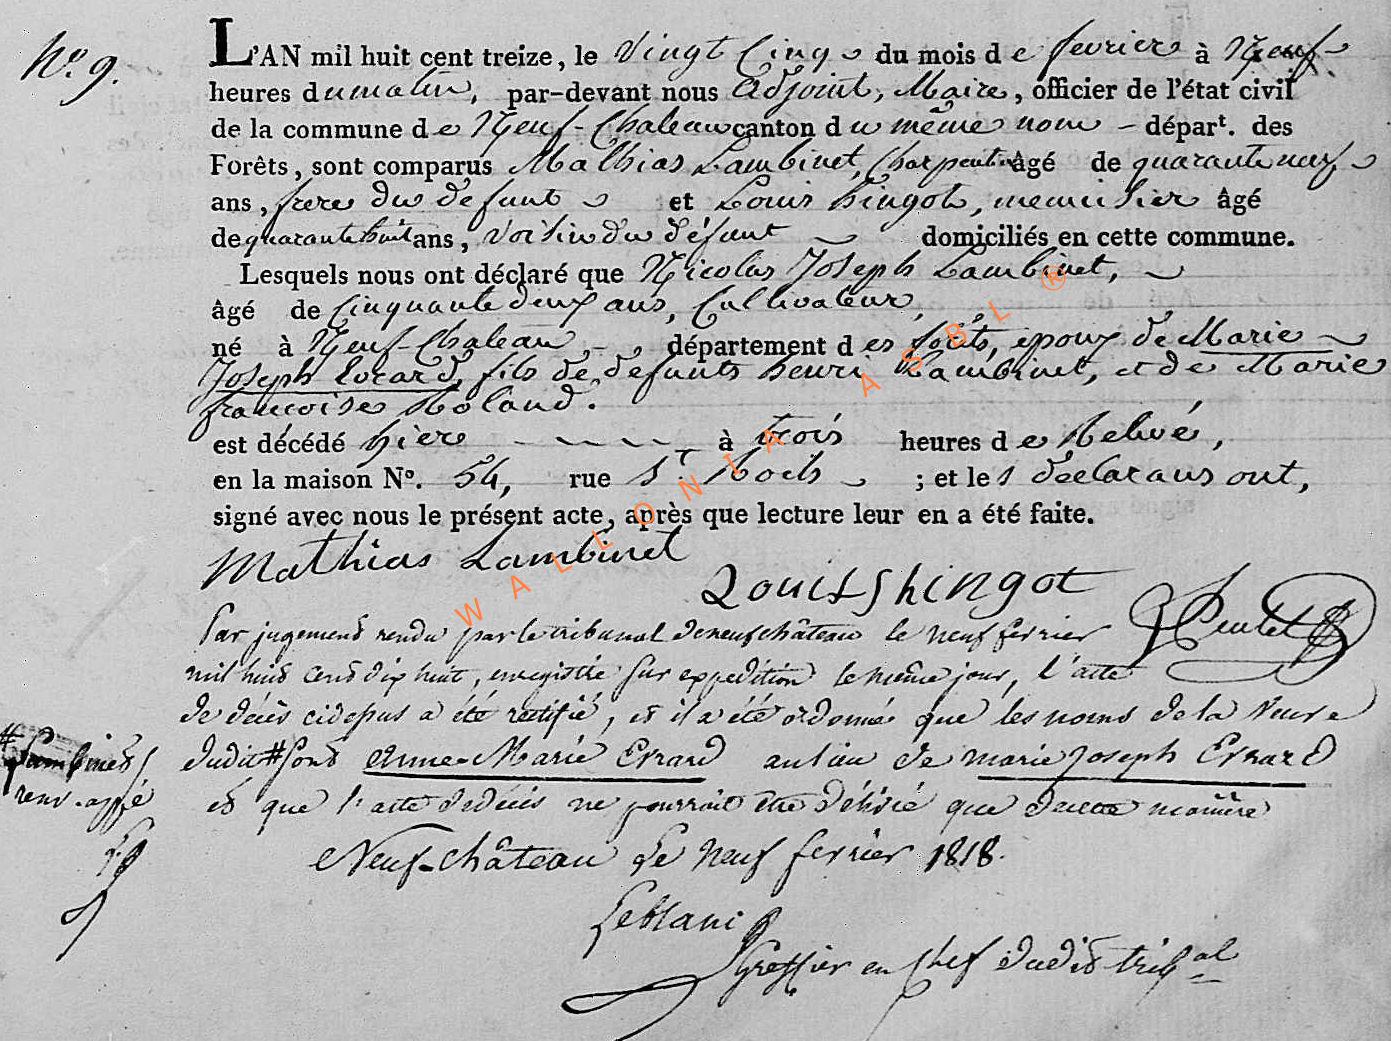 N.o 9.
L'AN mil huit cent treize, le Vingt Cinq du mois de fevrier à Neuf
heures du matin, par-devant nous adjoint, Maire, officier de l'état civil
de la commune de Neuf-Chateau canton du même nom - dépar.t des
Forêts, sont comparus Mathias Lambinet, Charpentier âgé de quarante neuf
ans, frere du défunt et Louis hingot, menuisier âgé
de quarante huit ans, Voisin du défunt domiciliés en cette commune.
Lesquels nous ont déclaré que Nicolas Joseph Lambinet,
âgé de Cinquante deux ans, Cultivateur,
né à Neuf-Chateau - , département des forêts, epoux de Marie
Joseph Evrard, fils de défunts henri Lambinet, et de Marie
francoise Roland.
est décédé hier à trois heures de Relevé,
en la maison No. 54, rue St. Roch ; et les déclarans ont,
signé avec nous le présent acte, après que lecture leur en a été faite.
Mathias Lambinet
Louis hingot
Par jugement rendu par le tribunal de neufchâteau le neuf fevrier
mil huit cent dix huit, enregistré sur expedition le même jour, l'acte
de décès cidessus a été rectifié, et il a été ordonné que les noms de la Veuve
dudit # sont Anne-Marie Evrard au lieu de marie joseph Evrard
# Lambinet
renv. appé
et que l'acte de décès ne pourrait être délivré que de cette manière
Neuf-château Le Neuf fevrier 1818.
Leblanc
Greffier en Chef dudit tribal
WALLONIA ASBL ®